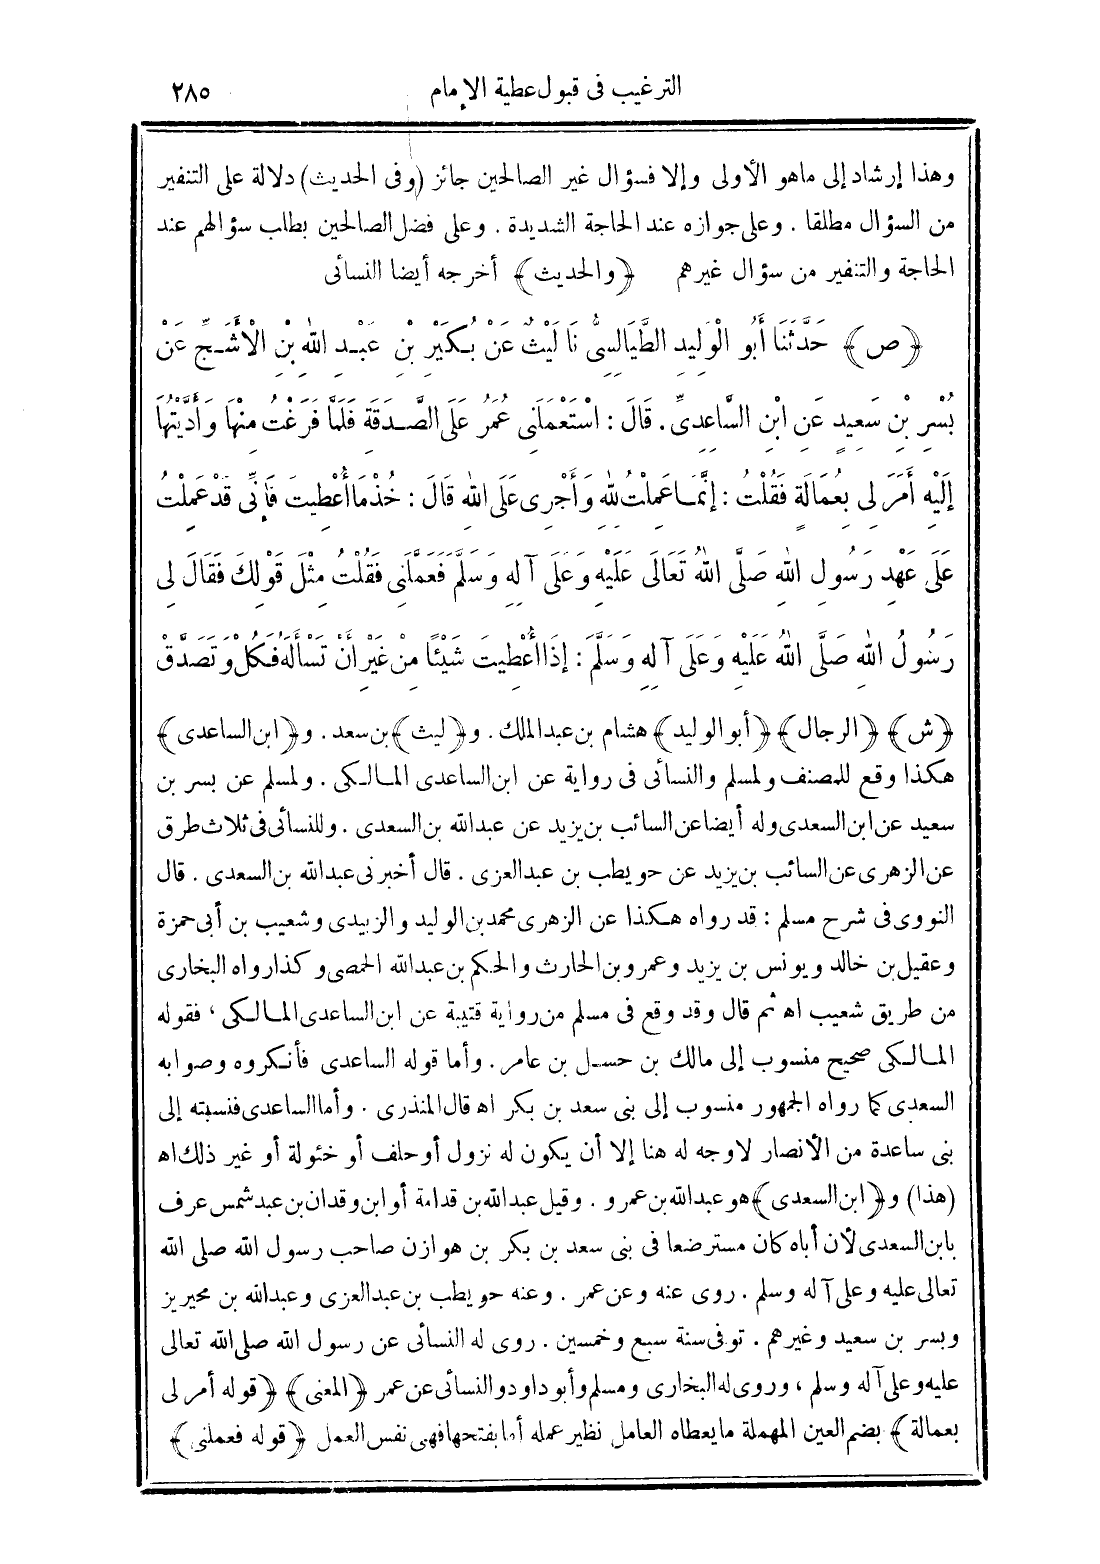 الترغيب فى قبول عطية الإمام
٢٨٥
وهذا إرشاد إلى ماهو الأولى وإلا فسؤال غير الصالحين جائز (وفى الحديث) دلالة على التنفير
من السؤال مطلقا . وعلى جوازه عند الحاجة الشديدة . وعلى فضل الصالحين بطلب سؤالهم عند
الحاجة والتنفير من سؤال غيرهم ﴿والحديث﴾ أخرجه أيضا النسائى
﴿ص﴾ حَدَّثَنَا أَبُو الْوَلِيدِ الطَّيَالِسِىُّ نَا لَيْثٌ عَنْ بُكَيْرِ بْنِ عَبْدِ اللهِ بْنِ الْأَشَجِّ عَنْ
بُسْرِ بْنِ سَعِيدٍ عَنِ ابْنِ السَّاعِدِىِّ . قَالَ : اسْتَعْمَلَنِى عُمَرُ عَلَى الصَّدَقَةِ فَلَمَّا فَرَغْتُ مِنْهَا وَأَدَّيْتُهَا
إِلَيْهِ أَمَرَ لِى بِعُمَالَةٍ فَقُلْتُ : إِنَّمَا عَمِلْتُ لِلهِ وَأَجْرِى عَلَى اللهِ قَالَ : خُذْ مَا أُعْطِيتَ فَإِنِّى قَدْ عَمِلْتُ
عَلَى عَهْدِ رَسُولِ اللهِ صَلَّى اللهُ تَعَالَى عَلَيْهِ وَعَلَى آلِهِ وَسَلَّمَ فَعَمَّلَنِى فَقُلْتُ مِثْلَ قَوْلِكَ فَقَالَ لِى
رَسُولُ اللهِ صَلَّى اللهُ عَلَيْهِ وَعَلَى آلِهِ وَسَلَّمَ : إِذَا أُعْطِيتَ شَيْئًا مِنْ غَيْرِ أَنْ تَسْأَلَهُ فَكُلْ وَتَصَدَّقْ
﴿ش﴾ ﴿الرجال﴾ ﴿أبو الوليد﴾ هشام بن عبد الملك . و﴿ليث﴾ بن سعد . و﴿ابن الساعدى﴾
هكذا وقع للمصنف ولمسلم والنسائى فى رواية عن ابن الساعدى المالكى . ولمسلم عن بسر بن
سعيد عن ابن السعدى وله أيضا عن السائب بن يزيد عن عبد الله بن السعدى . وللنسائى فى ثلاث طرق
عن الزهرى عن السائب بن يزيد عن حويطب بن عبد العزى . قال أخبرنى عبد الله بن السعدى . قال
النووى فى شرح مسلم : قد رواه هكذا عن الزهرى محمد بن الوليد والزبيدى وشعيب بن أبى حمزة
وعقيل بن خالد ويونس بن يزيد وعمرو بن الحارث والحكم بن عبد الله الحمصى وكذا رواه البخارى
من طريق شعيب اه ثم قال وقد وقع فى مسلم من رواية قتيبة عن ابن الساعدى المالكى ، فقوله
المالكى صحيح منسوب إلى مالك بن حسل بن عامر . وأما قوله الساعدى فأنكروه وصوابه
السعدى كما رواه الجمهور منسوب إلى بنى سعد بن بكر اه قال المنذرى . وأما الساعدى فنسبته إلى
بنى ساعدة من الأنصار لاوجه له هنا إلا أن يكون له نزول أو حلف أو خئولة أو غير ذلك اه
(هذا) و﴿ابن السعدى﴾ هو عبد الله بن عمرو . وقيل عبد الله بن قدامة أو ابن وقدان بن عبد شمس عرف
بابن السعدى لأن أباه كان مسترضعا فى بنى سعد بن بكر بن هوازن صاحب رسول الله صلى الله
تعالى عليه وعلى آله وسلم . روى عنه وعن عمر . وعنه حويطب بن عبد العزى وعبد الله بن محيريز
وبسر بن سعيد وغيرهم . توفى سنة سبع وخمسين . روى له النسائى عن رسول الله صلى الله تعالى
عليه وعلى آله وسلم ، وروى له البخارى ومسلم وأبو داود والنسائى عن عمر ﴿المعنى﴾ ﴿قوله أمر لى
بعمالة﴾ بضم العين المهملة ما يعطاه العامل نظير عمله أما بفتحها فهى نفس العمل ﴿قوله فعملنى﴾